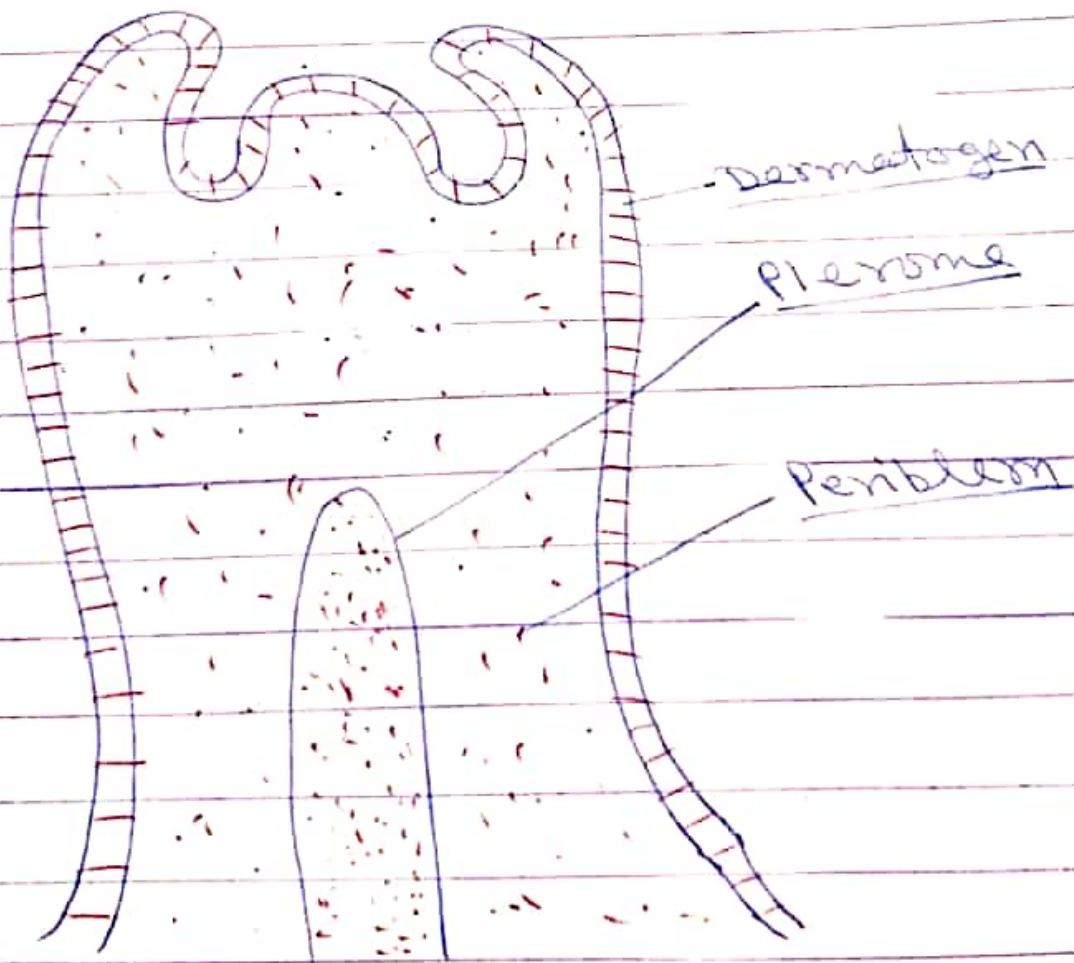 Dermatogen
Plerome
Periblem